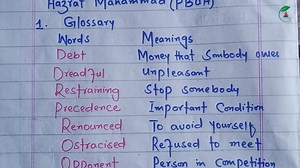 Hazrat Muhammad (PBUH)
1. Glossary
Words Meanings
Debt Money that sombody owes
Dreadful Unpleasant
Restraining Stop somebody
Precedence Important Condition
Renounced To avoid yourself
Ostracised Refused to meet
Opponent Person in competition